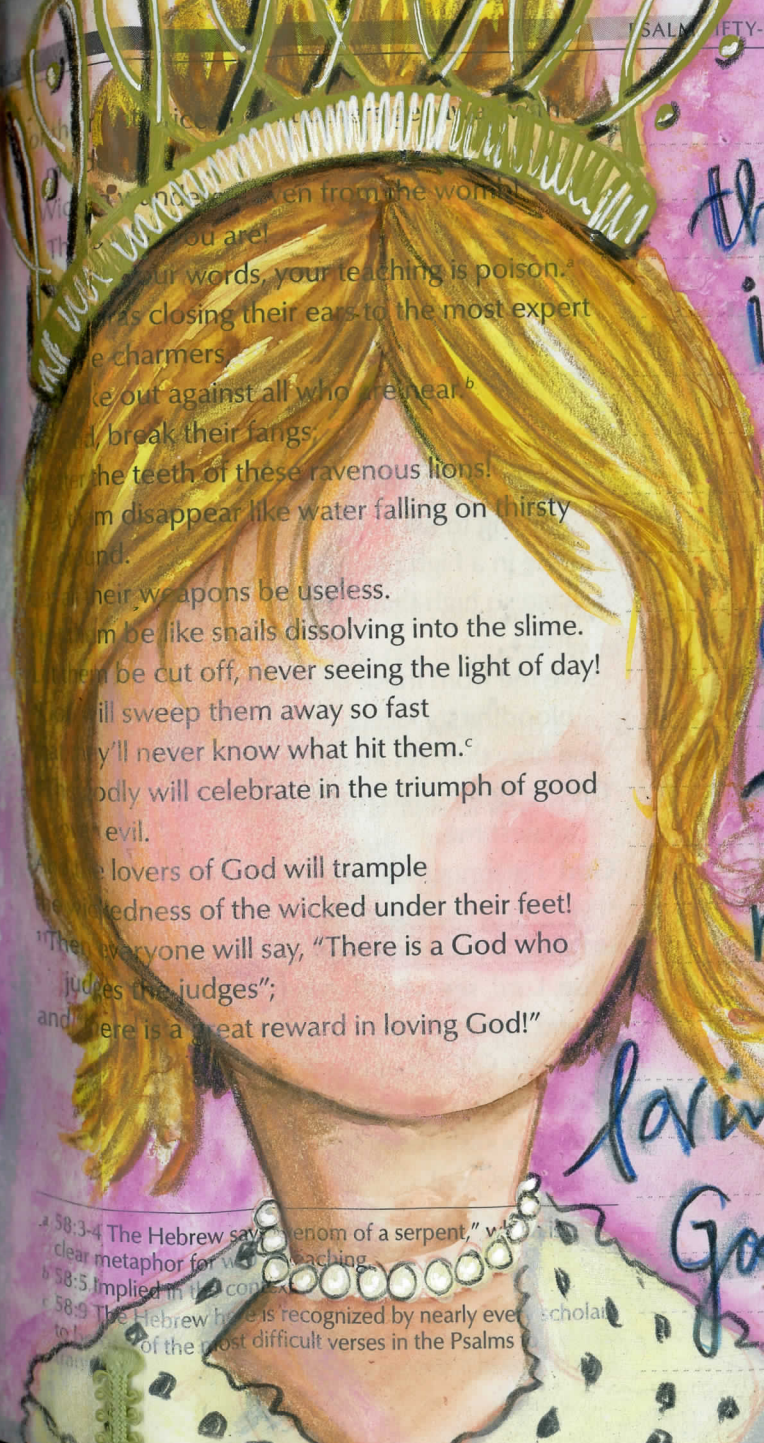 PSALM FIFTY-
en from the womb!
ou are!
ur words, your teaching is poison.ᵃ
as closing their ears to the most expert
e charmers,
ke out against all who are near.ᵇ
d, break their fangs;
the teeth of these ravenous lions!
m disappear like water falling on thirsty
und.
heir weapons be useless.
m be like snails dissolving into the slime.
hem be cut off, never seeing the light of day!
ill sweep them away so fast
y'll never know what hit them.ᶜ
odly will celebrate in the triumph of good
over evil.
lovers of God will trample
the wickedness of the wicked under their feet!
¹¹Then everyone will say, “There is a God who
judges the judges”;
and there is a great reward in loving God!”
th
i
lovin
Go
ᵃ 58:3-4 The Hebrew say venom of a serpent,”
clear metaphor for teaching.
ᵇ 58:5 Implied in the context
ᶜ 58:9 The Hebrew here is recognized by nearly every scholar
to of the most difficult verses in the Psalms